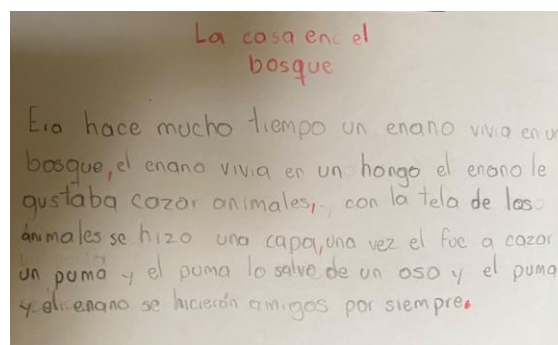 La casa enc el
bosque
Era hace mucho tiempo un enano vivia en un
bosque, el enano vivia en un hongo el enano le
gustaba cazar animales, con la tela de los
animales se hizo una capa, una vez el fue a cazar
un puma y el puma lo salvo de un oso y el puma
y el enano se hicierón amigos por siempre.